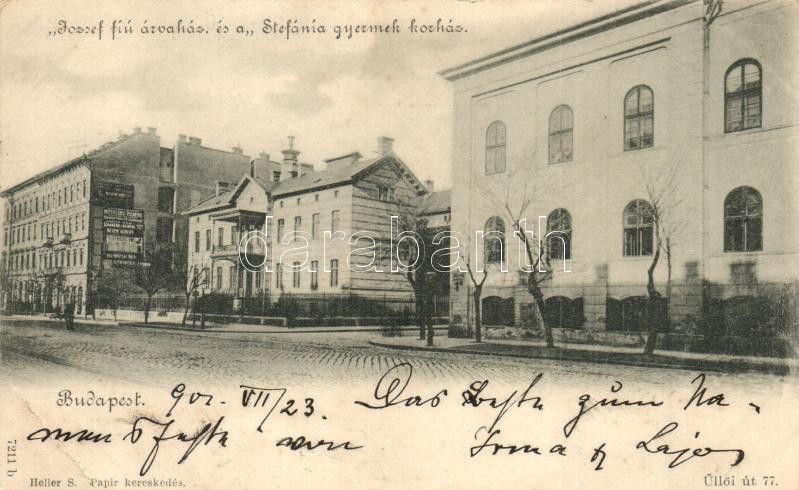 „Jozsef fiú árvaház. és a„ Stefánia gyermek korház.
darabanth.com
Budapest. 901. VII/23. Das Beste zum Na-
mensfeste von Irma & Lajos
7211 b
Heller S. Papir kereskedés.
Üllői út 77.